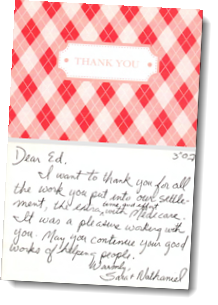 THANK YOU
Dear Ed,
I want to thank you for all
the work you put into our settle-
ment, the extra time and effort
with Medicare.
It was a pleasure working with
you. May you continue your good
works of helping people.
Warmly,
Sara + Nathaniel